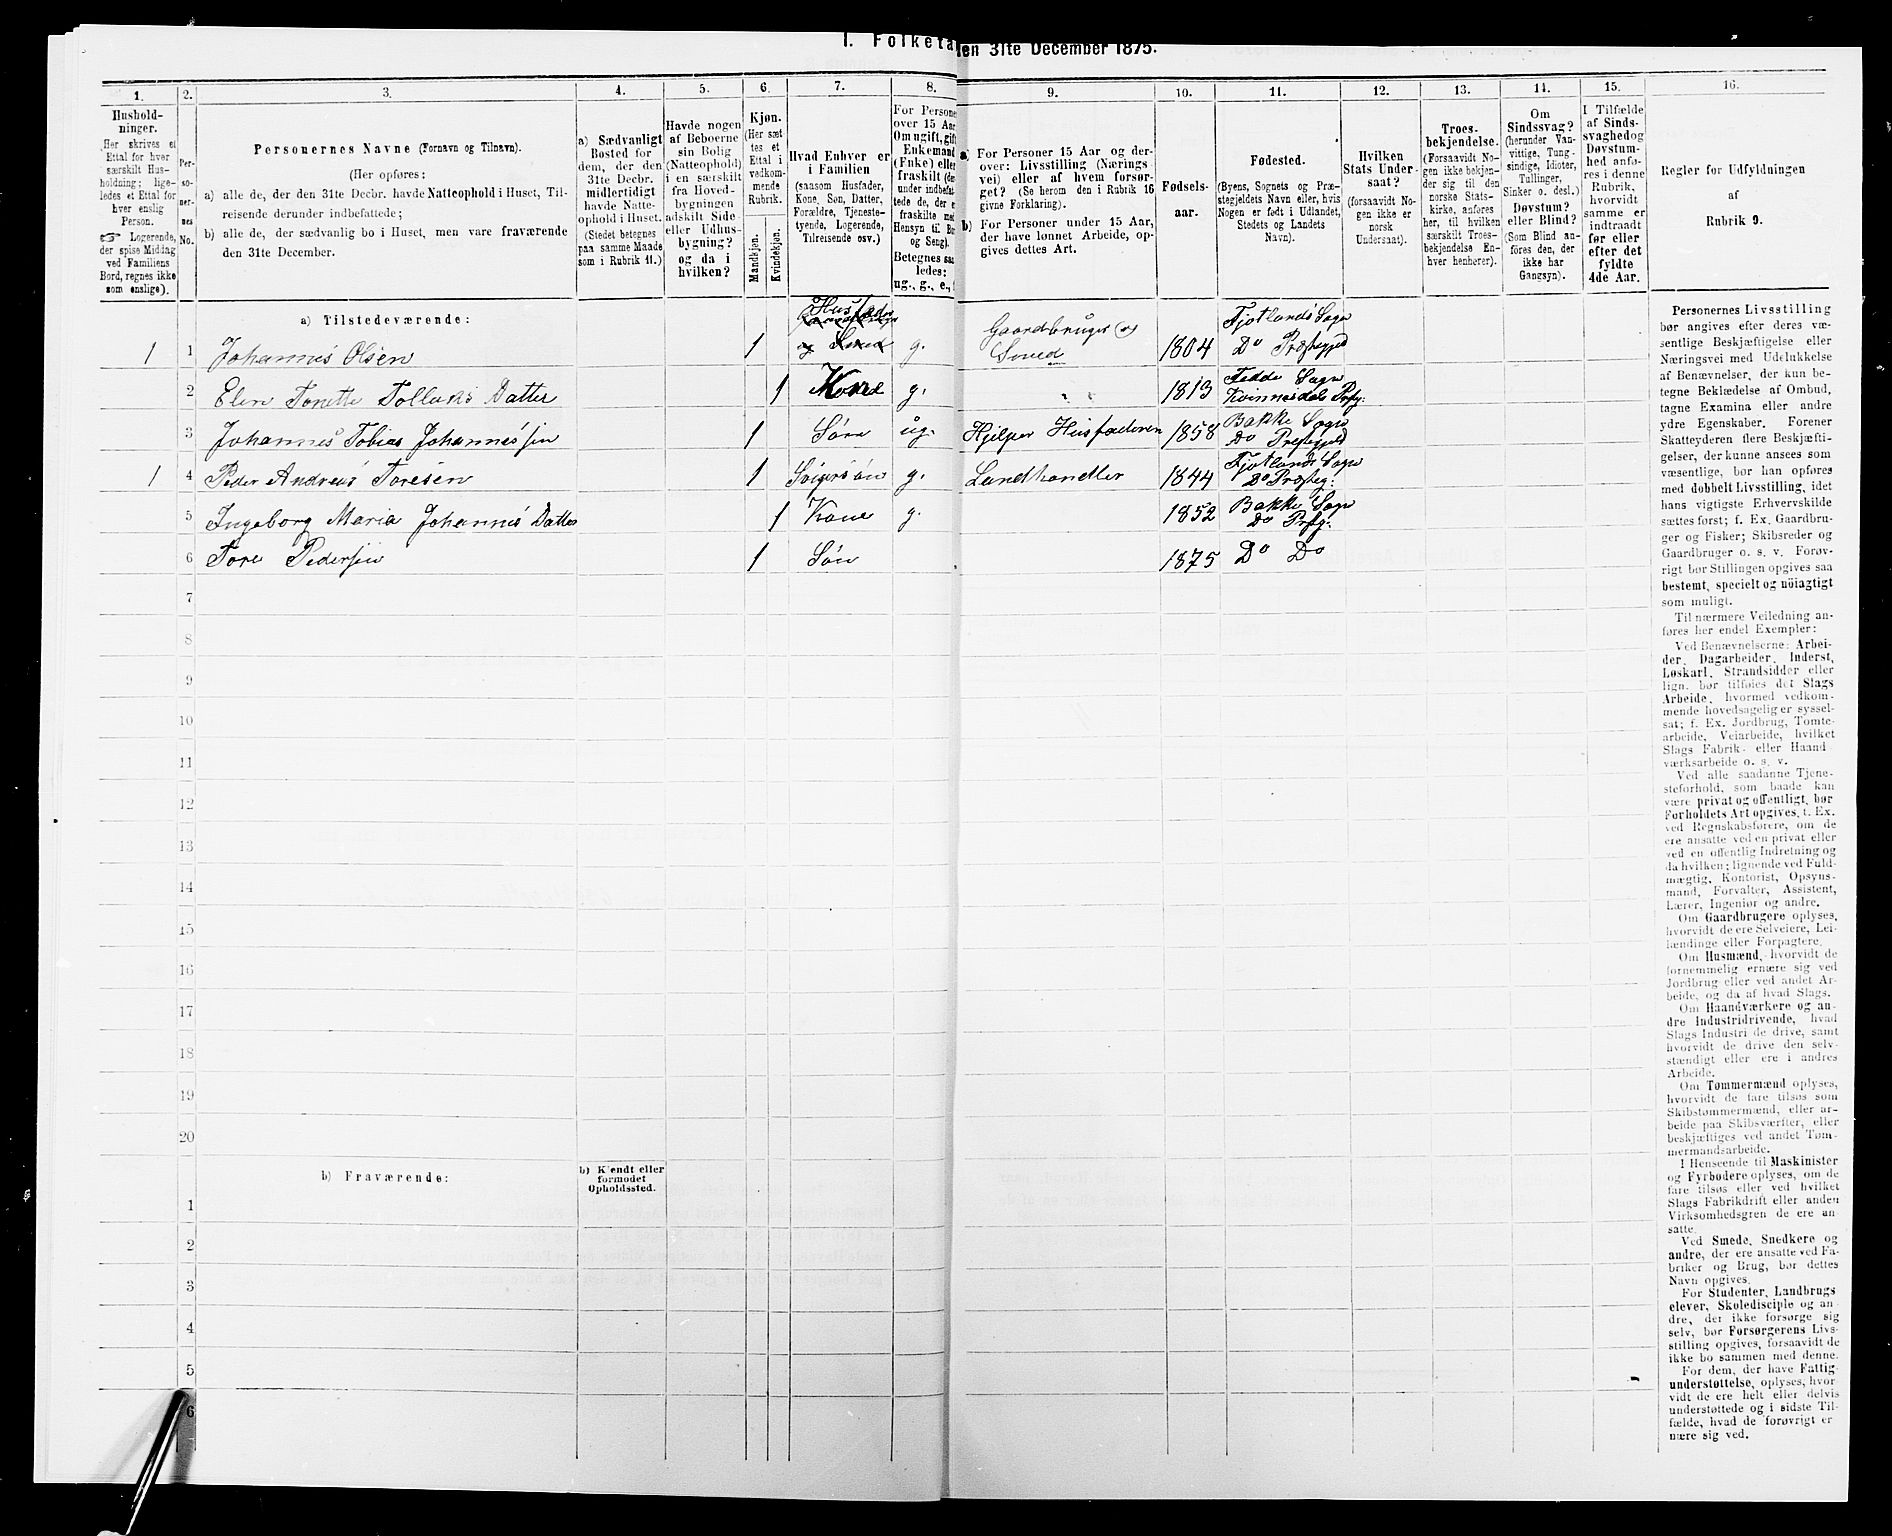 I. Folketæ
en 31te December 1875.
1.
2.
3.
4.
5.
6.
7.
8.
9.
10.
11.
12.
13.
14.
15.
16.
Hushold-
ninger.
(Her skrives et
Ettal for hver
særskilt Hus-
holdning; lige-
ledes et Ettal for
hver enslig
Person.
☞ Logerende,
der spise Middag
ved Familiens
Bord, regnes ikke
som enslige).
Per-
so-
ner-
nes
No.
Personernes Navne (Fornavn og Tilnavn).
(Her opføres:
a) alle de, der den 31te Decbr. havde Natteophold i Huset, Til-
reisende derunder indbefattede;
b) alle de, der sædvanlig bo i Huset, men vare fraværende
den 31te December.
a) Sædvanligt
Bosted for
dem, der den
31te Decbr.
midlertidigt
havde Natte-
ophold i Huset.
(Stedet betegnes
paa samme Maade
som i Rubrik 11.)
Havde nogen
af Beboerne
sin Bolig
(Natteophold)
i en særskilt
fra Hoved-
bygningen
adskilt Side-
eller Udhus-
bygning?
og da i
hvilken?
Kjøn.
(Her sæt
tes et
Ettal i
vedkom-
mende
Rubrik.
Mandkjøn.
Kvindekjøn.
Hvad Enhver er
i Familien
(saasom Husfader,
Kone, Søn, Datter,
Forældre, Tjeneste-
tyende, Logerende,
Tilreisende osv.)
For Persone
over 15 Aar
Om ugift, gift
Enkemand
(Enke) eller
fraskilt (der
under indbefat-
tede de, der e
fraskilte me
Hensyn til Bo
og Seng).
Betegnes saa
ledes:
ug., g., e., f
a) For Personer 15 Aar og der-
over: Livsstilling (Nærings-
vei) eller af hvem forsør-
get? (Se herom den i Rubrik 16
givne Forklaring).
b) For Personer under 15 Aar,
der have lønnet Arbeide, op-
gives dettes Art.
Fødsels-
aar.
Fødested.
(Byens, Sognets og Præ-
stegjeldets Navn eller, hvis
Nogen er født i Udlandet,
Stedets og Landets
Navn).
Hvilken
Stats Under-
saat?
(forsaavidt No-
gen ikke er
norsk
Undersaat).
Troes-
bekjendelse.
(Forsaavidt No-
gen ikke bekjen-
der sig til den
norske Stats-
kirke, anføres
her, til hvilken
særskilt Troes-
bekjendelse En-
hver henhører).
Om
Sindssvag?
(herunder Van-
vittige, Tung-
sindige, Idioter,
Tullinger,
Sinker o. desl.)
Døvstum?
eller Blind?
(Som Blind an-
føres den, der
ikke har
Gangsyn).
I Tilfælde
af Sinds-
svaghed og
Døvstum-
hed anfø-
res i denne
Rubrik,
hvorvidt
samme er
indtraadt
før eller
efter det
fyldte
4de Aar.
Regler for Udfyldningen
af
Rubrik 9.
a) Tilstedeværende:
1 1 Johannes Olsen 1 Husfader g. Gaardbruger og Smed 1804 Fjotlands Sogn Do Præstegjeld
2 Elen Tonette Tollaks Datter 1 Kone g. " " 1813 Fedde Sogn Kvinnesdals Prstg:
3 Johannes Tobias Johannesjen 1 Søn ug. Hjelper Husfaderen 1858 Bakke Sogn Do Prestegjeld
1 4 Peder Andreas Toresen 1 Svigersøn g. Landhandler 1844 Fjotlands Sogn Do Præsteg:
5 Ingeborg Maria Johannes Datter 1 Kone g. 1852 Bakke Sogn Do Prstg:
6 Tore Pedersen 1 Søn 1875 Do Do
7
8
9
10
11
12
13
14
15
16
17
18
19
20
b) Fraværende:
b) Kjendt eller
formodet
Opholdssted.
1
2
3
4
5
6
Personernes Livsstilling
bør angives efter deres væ-
sentlige Beskjæftigelse eller
Næringsvei med Udelukkelse
af Benævnelser, der kun be-
tegne Beklædelse af Ombud,
tagne Examina eller andre
ydre Egenskaber. Forener
Skatteyderen flere Beskjæfti-
gelser, der kunne ansees som
væsentlige, bør han opføres
med dobbelt Livsstilling, idet
hans vigtigste Erhvervskilde
sættes først; f. Ex. Gaardbru-
ger og Fisker; Skibsreder og
Gaardbruger o. s. v. Forøv-
rigt bør Stillingen opgives saa
bestemt, specielt og nöiagtigt
som muligt.
Til nærmere Veiledning an-
føres her endel Exempler:
Ved Benævnelserne: Arbei-
der, Dagarbeider, Inderst,
Løskarl, Strandsidder eller
lign. bør tilføies det Slags
Arbeide, hvormed vedkom-
mende hovedsagelig er syssel-
sat; f. Ex. Jordbrug, Tomte-
arbeide, Veiarbeide, hvilket
Slags Fabrik- eller Haand
værksarbeide o. s. v.
Ved alle saadanne Tjene-
steforhold, som baade kan
være privat og offentligt, bør
Forholdets Art opgives, t. Ex.
ved Regnskabsførere, om de
ere ansatte ved en privat eller
ved en offentlig Indretning og
da hvilken; lignende ved Fuld-
mægtig, Kontorist, Opsyns-
mand, Forvalter, Assistent,
Lærer, Ingeniør og andre.
Om Gaardbrugere oplyses,
hvorvidt de ere Selveiere, Lei-
lændinge eller Forpagtere.
Om Husmænd, hvorvidt de
fornemmelig ernære sig ved
Jordbrug eller ved andet Ar-
beide, og da af hvad Slags.
Om Haandværkere og an-
dre Industridrivende, hvad
Slags Industri de drive, samt
hvorvidt de drive den selv-
stændigt eller ere i andres
Arbeide.
Om Tømmermænd oplyses,
hvorvidt de fare tilsøs som
Skibstømmermænd, eller ar-
beide paa Skibsværfter, eller
beskjæftiges ved andet Tøm-
mermandsarbeide.
I Henseende til Maskinister
og Fyrbødere oplyses, om de
fare tilsøs eller ved hvilket
Slags Fabrikdrift eller anden
Virksomhedsgren de ere an-
satte.
Ved Smede, Snedkere og
andre, der ere ansatte ved Fa-
briker og Brug, bør dettes
Navn opgives.
For Studenter, Landbrugs
elever, Skoledisciple og an-
dre, der ikke forsørge sig
selv, bør Forsørgerens Livs-
stilling opgives, forsaavidt de
ikke bo sammen med denne.
For dem, der have Fattig-
understøttelse, oplyses, hvor-
vidt de ere helt eller delvis
understøttede og i sidste Til-
fælde, hvad de forøvrigt er
nære sig ved.